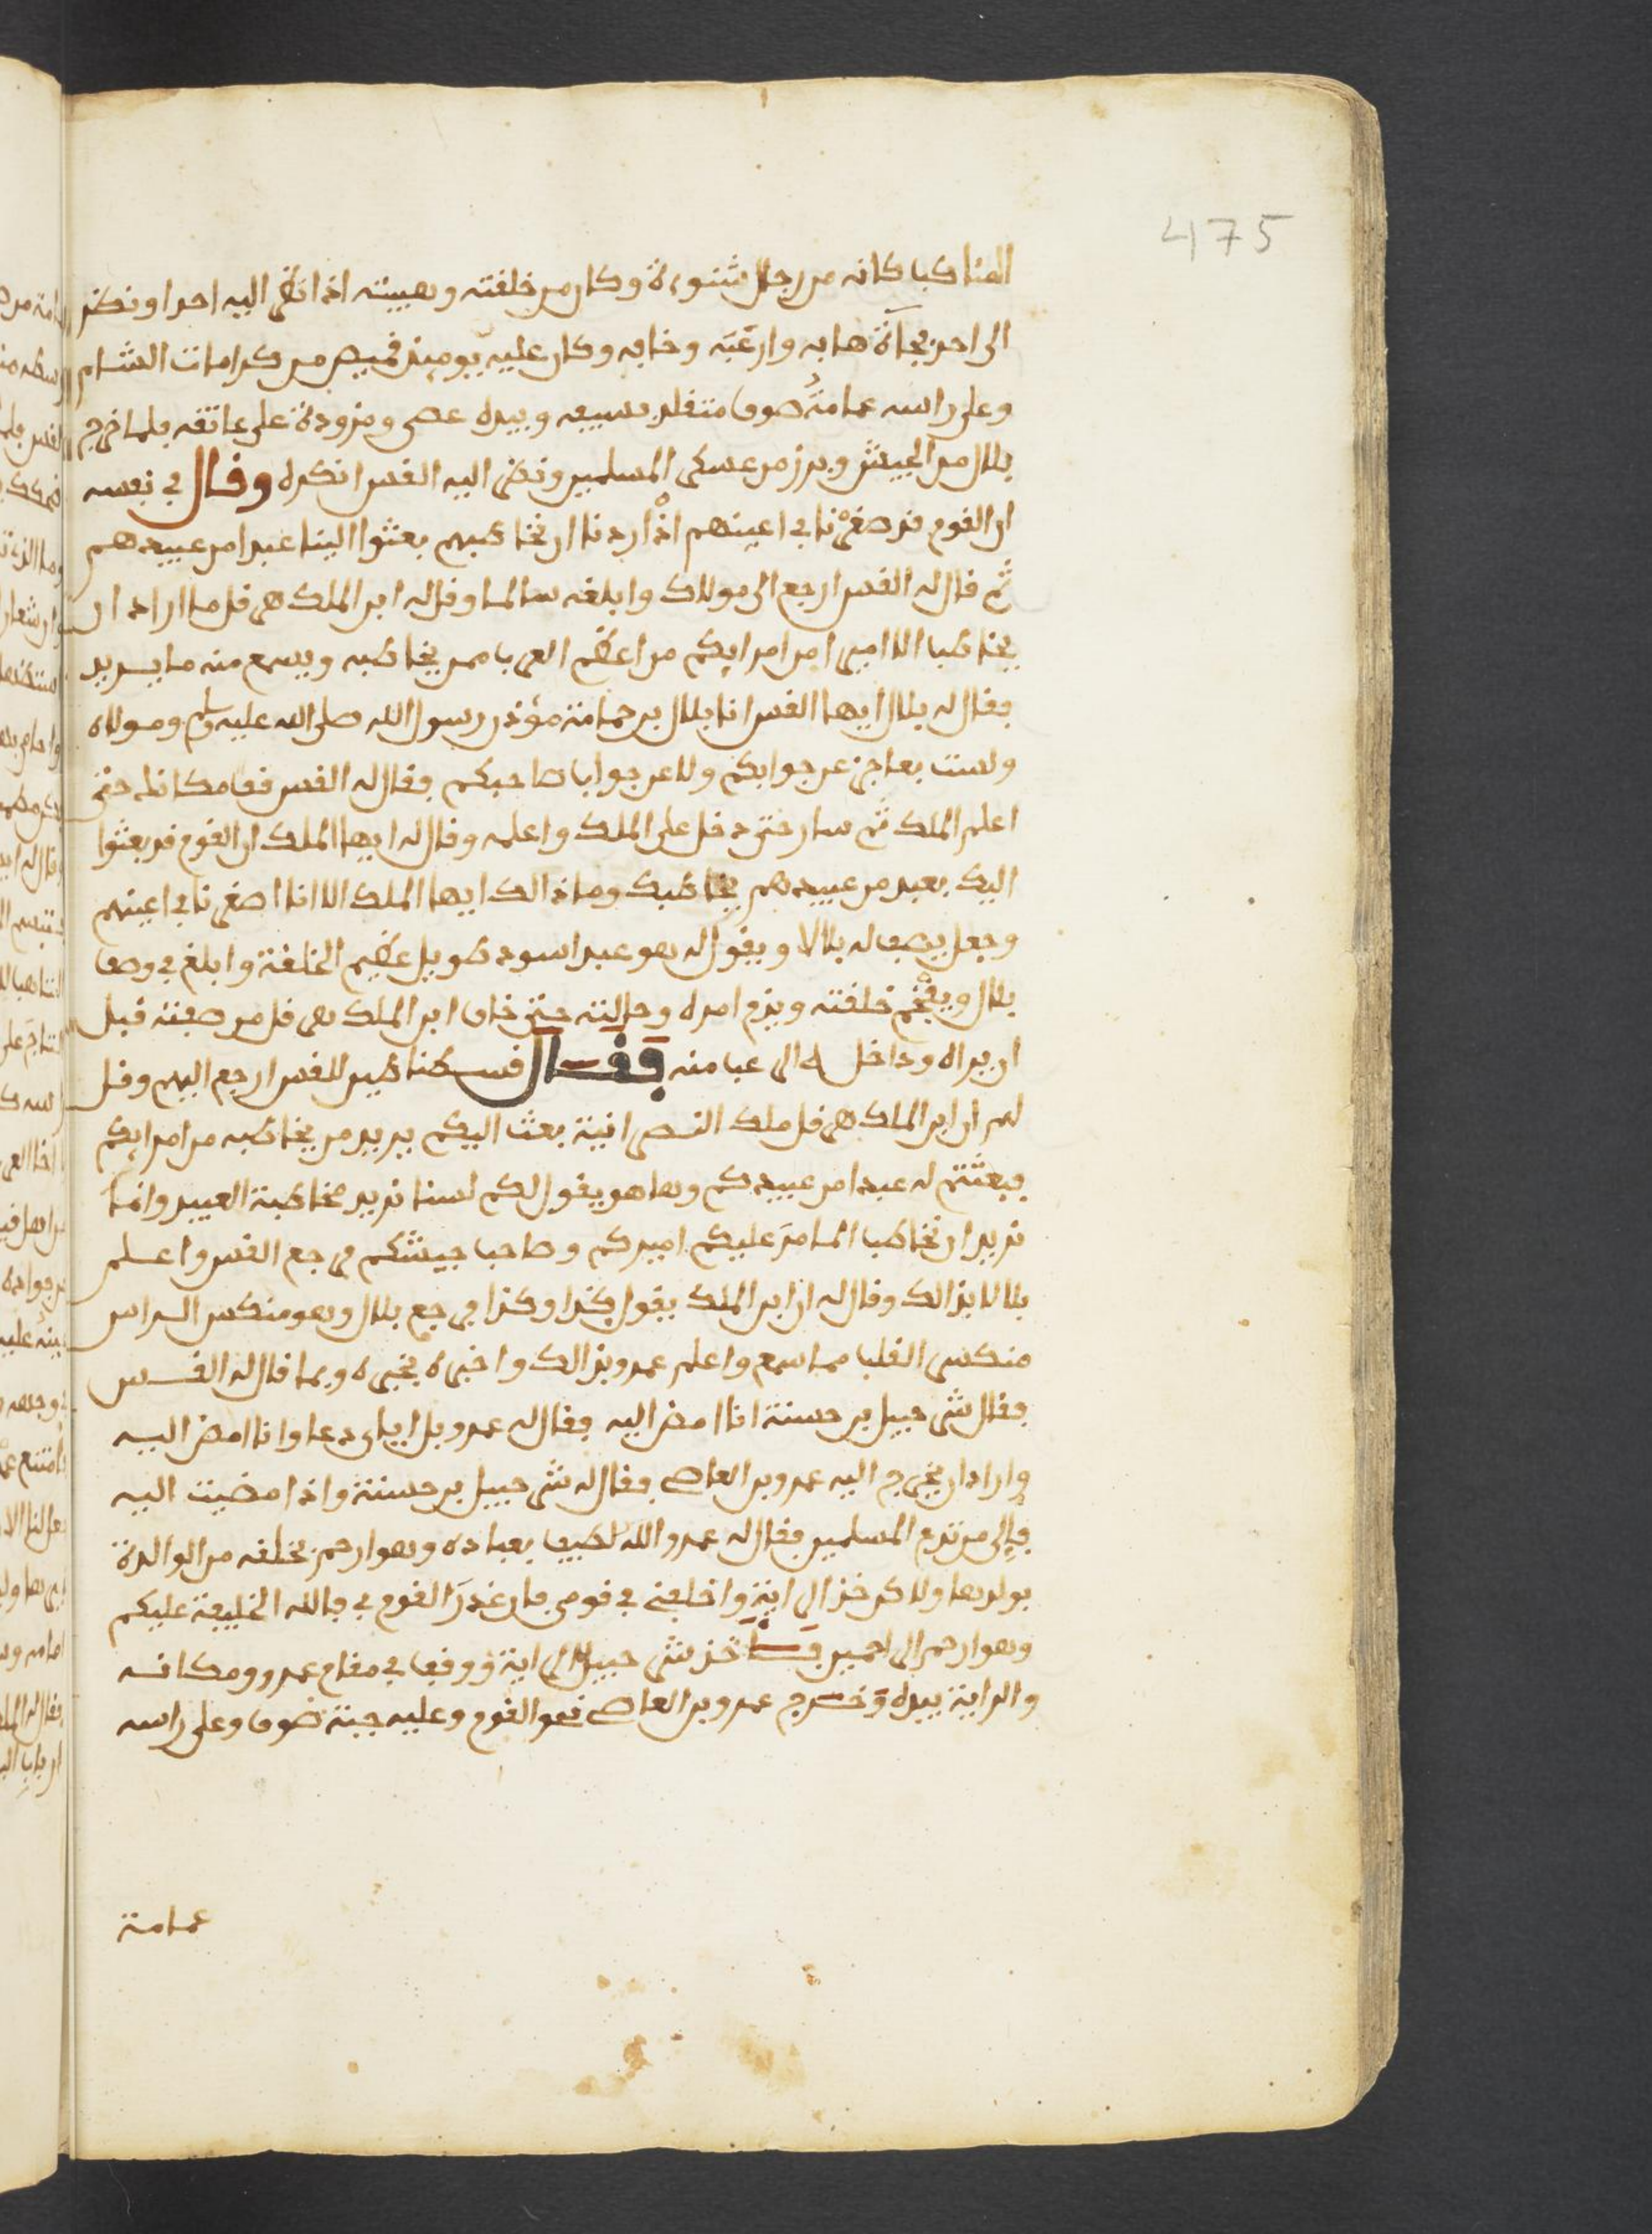 475
المناكب كانه من رجال شنوءة وكان من خلفته وهيبته اذا نظر اليه احد او نظر
الى احد فجأة هابه وارعبه وخافه وكان عليه يوميذ قميص من كرامات الشام
وعلى راسه عمامة صوف متقلد بسيبه وبيده عصى ومزودة على عاتقه فلما خرج
بلال من الجيش وبرز من عسكر المسلمين ونظر اليه القس انكره وقال في نفسه
ان القوم قد صغرنا في اعينهم اذ اردنا ان نخاطبهم بعثوا الينا عبدا من عبيدهم
ثم قال له القس ارجع الى مولاك وابلغه سالما وقل له ابن الملك هرقل ما اراد ان
يخاطب الا امير امن امرايكم من اعظم العرب ممن يخاطبه ويسمع منه ما يريد
فقال له بلال ايها القس انا بلال بن حمامة مؤذن رسول الله صلى الله عليه وسلم ومولاه
ولست بعاجز عن جوابكم ولا عن جواب صاحبكم فقال له القس قف مكانك حتى
اعلم الملك ثم سار حتى دخل على الملك واعلمه وقال له ايها الملك ان القوم قد بعثوا
اليك بعبد من عبيدهم يخاطبك وما ذالك ايها الملك الا انا اصغرنا في اعينهم
وجعل يصف له بلالا ويقول له هو عبد اسود طويل عظيم الخلفة وابلغ في وصف
بلال ويفخم خلفته ويزم امره وحالته حتى خاف ابن الملك هرقل من صفته قبل
ان يراه وداخل له الرعب منه فقال قسطنطين للقس ارجع اليهم وقل
لهم ان ابن الملك هرقل ملك النصرانية بعث اليكم يريد من يخاطبه من امرايكم
فبعثتم له عبدا من عبيدكم وها هو يقول لكم لسنا نريد مخاطبة العبيد وانما
نريد ان نخاطب المامر عليكم اميركم وصاحب جيشكم فرجع القس واعلم
بلالا بذالك وقال له ان ابن الملك يقول كذا وكذا فرجع بلال وهو منكس الراس
منكسر القلب مما سمع واعلم عمرو بذالك واخبره بخبره وبما قال له القس
فقال شرحبيل بن حسنة انا امض اليه فقال له عمرو بل اياى دعا وانا امض اليه
واراد ان يخرج اليه عمرو بن العاص فقال له شرحبيل بن حسنة واذا مضيت اليه
فالى من تدع المسلمين فقال له عمرو الله لطيف بعباده وهو ارحم بخلفه من الوالدة
بولدها ولاكن خذ الراية واخلفنى في قومى فان غدر القوم بى فالله الخليفة عليكم
وهو ارحم الراحمين فاخذ شرحبيل الراية ووقف في مقام عمرو ومكانه
والراية بيده وخرج عمرو بن العاص نحو القوم وعليه جبة صوف وعلى راسه
عمامة